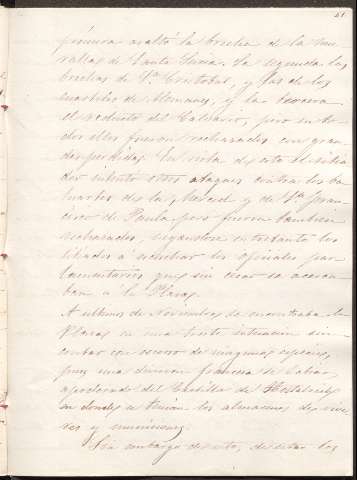 31
primera asaltó la brecha de la mu-
rallas de Santa Lucia. La segunda las
brechas de Sn. Cristobal, y las de los
cuarteles de Alemanes, y la tercera
el reducto del Calvario, pero en to-
dos ellos fueron rechazados con gran-
des perdidas. En vista de esto el sitia-
dor intentó otros ataques contra los ba-
luartes de la Merced y de Sn. Fran-
cisco de Paula, pero fueron tambien
rechazados, negandose entretanto los
sitiados a escuchar los oficiales par-
lamentarios que sin cesar se acerca-
ban á la Plaza.
A ultimos de Noviembre se encontraba la
Plaza en una triste situacion sin
contar con socorro de ninguna especie,
pues una division francesa se habia
apoderado del Castillo de Hostalrich
en donde se tenian los almacenes de vive-
res y municiones.
Sin embargo de esto, de estar los